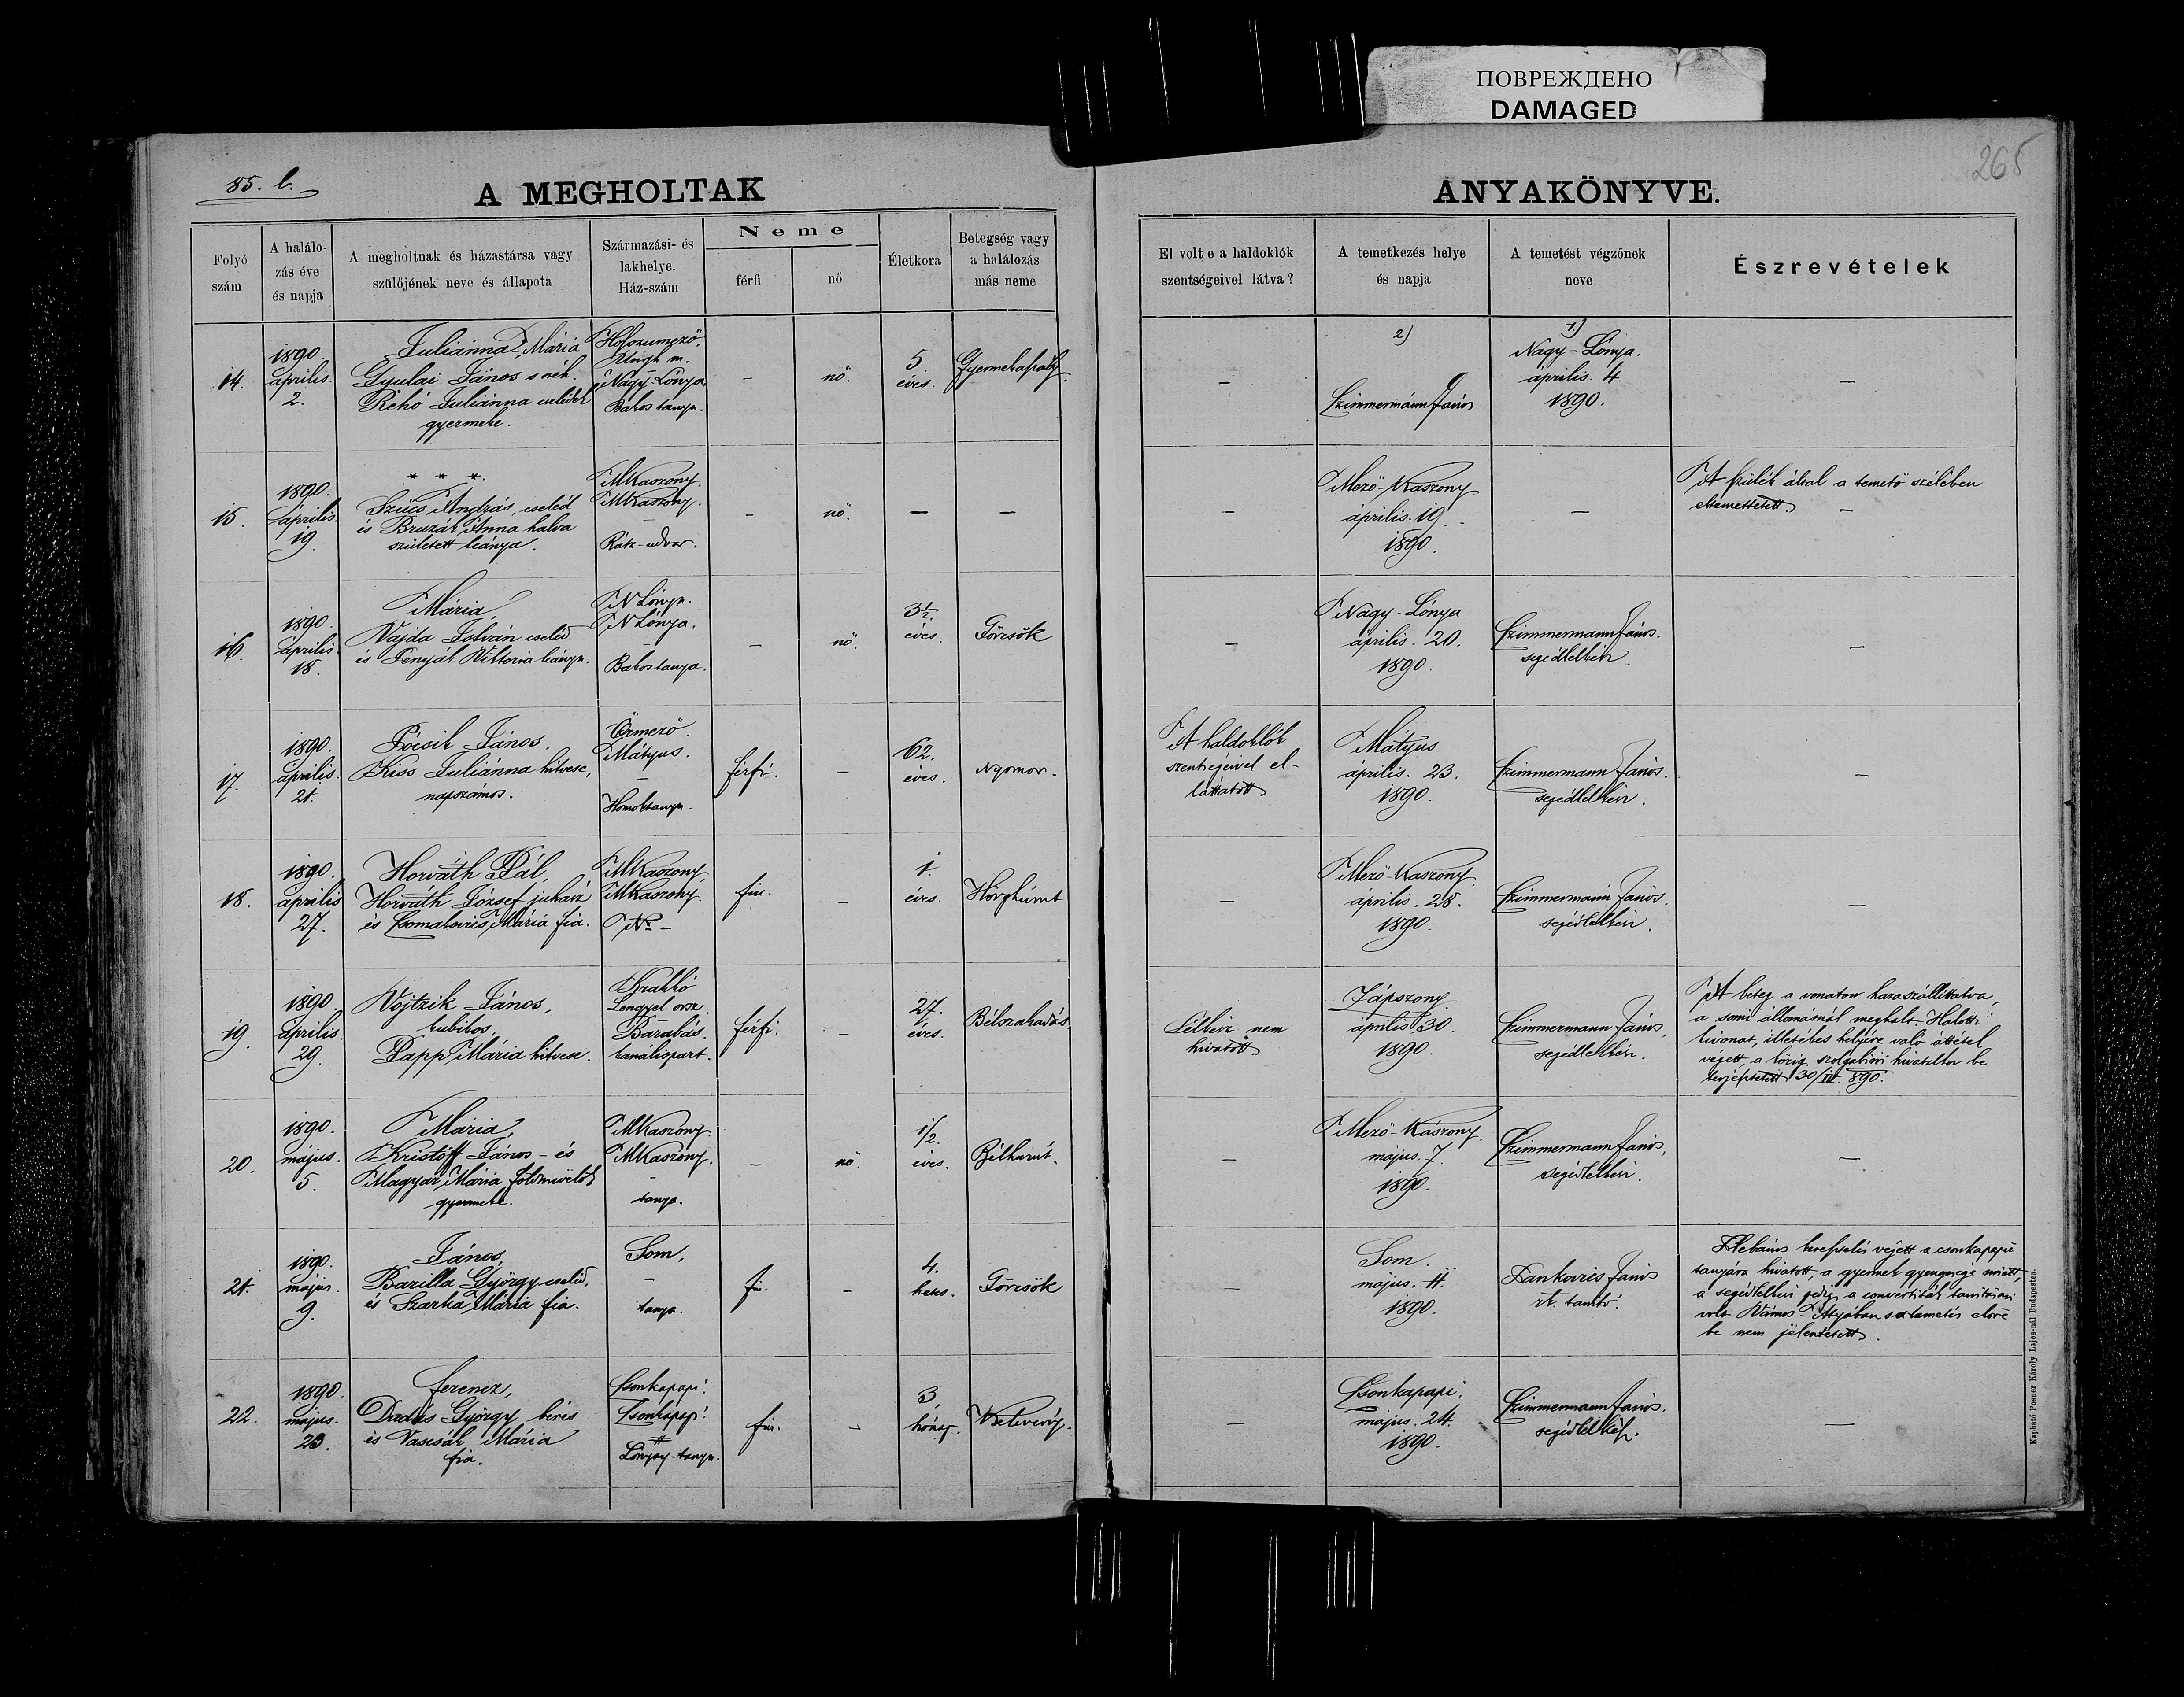 ПОВРЕЖДЕНО
DAMAGED
265
85. l.
A MEGHOLTAK
ANYAKÖNYVE.
Folyó
szám
A halálo-
zás éve
és napja
A megholtnak és házastársa vagy
szülőjének neve és állapota
Származási- és
lakhelye.
Ház-szám
Neme
férfi
nő
Életkora
Betegség vagy
a halálozás
más neme
El volt e a haldoklók
szentségeivel látva?
A temetkezés helye
és napja
A temetést végzőnek
neve
Észrevételek
14.
1890.
április
2.
Juliánna Mária
Gyulai János s néh.
Rehó Juliánna cselédek
gyermeke.
Ungh m.
Nagy-Lónya
Bakos tanya.
–
nő.
5.
éves.
–
2)
Czimmermánn János
1)
Nagy-Lónya.
április. 4.
1890.
–
15.
1890.
április.
19.
* * *
Szücs András, cseléd
és Bruzák Anna halva
született leánya.
MKaszony.
MKaszony.
–
Rátz-udvar.
–
nő.
–
–
–
Mező-Kaszony
április. 19.
1890.
–
A szülék által a temető szélében
eltemettetett.
–
16.
1890.
április.
18.
Mária,
Vajda István cseléd
és Fenyák Viktoria leánya.
N Lónya.
N Lónya.
–
Bakos tanya.
–
nő.
3½
éves.
Görcsök
–
Nagy-Lónya
április. 20.
1890.
Czimmermann János.
segédlelkész.
–
17.
1890.
április.
21.
Pócsik János.
Kiss Juliánna hitvese,
napszámos.
Őrmező.
Mátyus.
–
Homoktanya.
férfi.
–
62.
éves.
Nyomor.
A haldoklók
szentségeivel el-
láttatott
Mátyus
április. 23.
1890.
Czimmermann János.
segédlelkész.
–
18.
1890.
április
27.
Horváth Pál,
Horváth József juhász
és Csomakovics Mária fia.
MKaszony,
MKaszony.
No –
fiu.
–
1.
éves.
Hörghurut
–
Mező-Kaszony
április. 28.
1890.
Czimmermann János.
segédlelkész.
–
19.
1890.
április.
29.
Wojtzik János,
kubikos,
Papp Mária hitvese.
Krakkó
Lengyel orsz.
Barabás.
kanálispart.
férfi.
–
27.
éves.
Bélszakadás.
Lelkész nem
hivatott
Zápszony
április 30.
1890.
Czimmermann János,
segédlelkész.
A beteg a vonaton hazaszállittatva,
a somi állomásnál meghalt. Halotti
kivonat, illetékes helyére való áttétel
végett a közig. szolgabirói hivatalhoz be
terjesztetett 30/IV. 890.
20.
1890.
május.
5.
Mária,
Kristóff János – és
Magyar Mária földmivelők
gyermeke.
MKaszony.
MKaszony.
–
tanya.
–
nő
1/2.
éves.
Bélhurút.
–
Mező-Kászony.
május. 7.
1890.
Czimmermann János,
segédlelkész.
–
21.
1890.
május.
9.
János,
Bazilla György cseléd,
és Szarka Mária fia.
Som,
–
tanya.
fiu.
–
4.
hetes.
Görcsök
–
Som.
május. 11.
1890.
Dankovics János
rk. tanitó.
Plebános keresztelés végett a csonkapapii
tanyára hivatott, a gyermek gyengesége miatt,
a segédlelkész pedig a convertiták tanitásán
volt Vámos-Atyában s a temetés előre
be nem jelentetett.
22.
1890.
május.
23.
Ferencz,
Dudás György béres
és Vascsák Mária
fia.
Csonkapapi.
Csonkapapi.
Lónyay-tanya.
fiu.
–
3,
hónap.
–
Csonkapapi.
május. 24.
1890.
Czimmermann János.
segédlelkész.
–
Kapható Posner Károly Lajos-nál Budapesten.